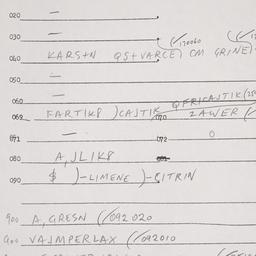 020 —
030 —
(✓130060
040 KARS+N QS+VARCE) OM GRINE)
050 —
060 — QFRICASTIK(
069 FARTIK8 )CAJTIK 070 ZAWER (
071 — 072 0
080 A,JLIK8
090 $ )-LIMENE )-CITRIN
900 A, GRESN (✓092020
900 VAJMPERLAX (✓092010